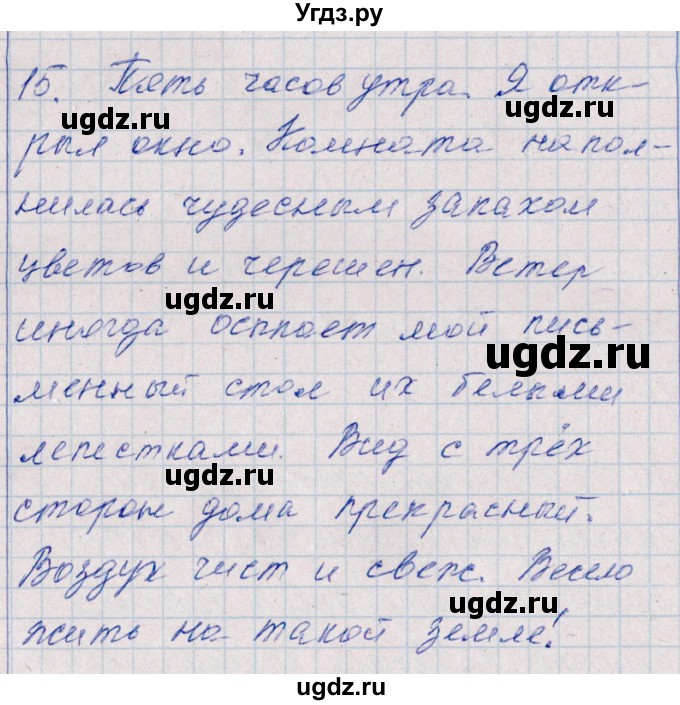 Угдз.ру
15. Пять часов утра. Я отк-
ugdz.ru ugdz.ru
рыл окно. Комната напол-
нилась чудесным запахом
цветов и черешен. Ветер
ugdz.ru
иногда осыпает мой пись-
ugdz.ru
менный стол их белыми
лепестками. Вид с трёх
ugdz.ru
сторон дома прекрасный.
Воздух чист и свеж. Весело
ugdz.ru
жить на такой земле!
ugdz.ru